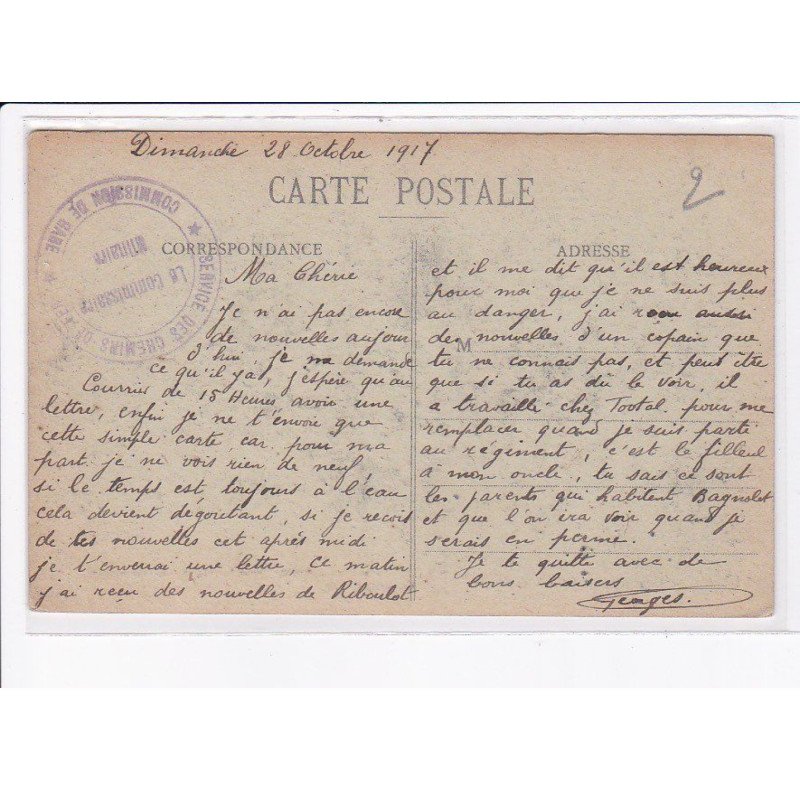 Dimanche 28 Octobre 1917
2
CARTE POSTALE
COMMISSION DE GARE
SERVICE DES CHEMINS DE
Le Commissaire
Militaire
CORRESPONDANCE
Ma Chérie
Je n'ai pas encore
de nouvelles aujour
d'hui, je me demande
ce qu'il y a, j'espère qu'au
Courrier de 15 Heures avoir une
lettre, enfin je ne t'envoie que
cette simple carte, car pour ma
part je ne vois rien de neuf,
si le temps est toujours à l'eau
cela devient dégoutant, si je recois
de tes nouvelles cet après midi
je t'enverrai une lettre, ce matin
j'ai reçu des nouvelles de Riboulot
ADRESSE
M
et il me dit qu'il est heureux
pour moi que je ne suis plus
au danger, j'ai reçu aussi
de nouvelles d'un copain que
tu ne connais pas, et peut être
que si tu as dû le voir, il
a travaillé chez Tootal pour me
remplacer quand je suis parti
au régiment, c'est le filleul
à mon oncle, tu sais ce sont
les parents qui habitent Bagnolet
et que l'on ira voir quand je
serais en perme.
Je te quitte avec de
bons baisers
Georges.